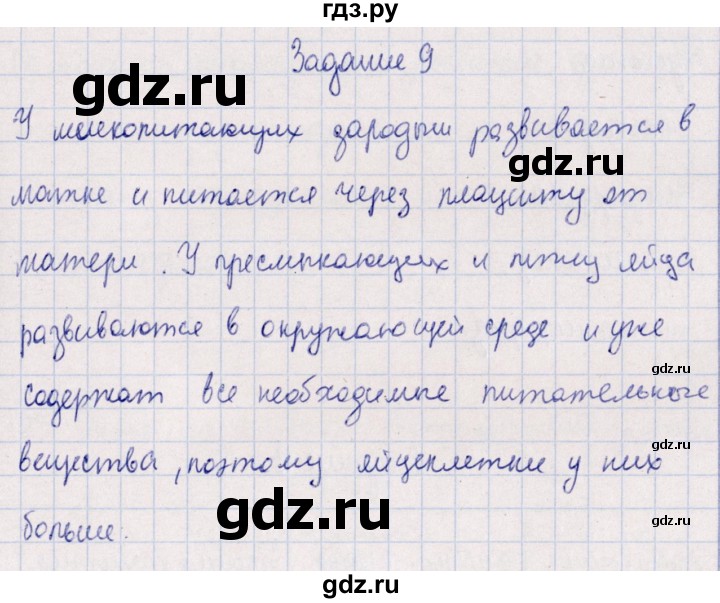 гдз.ру
Задание 9
gdz.ru
У млекопитающих зародыш развивается в
gdz.ru
матке и питается через плаценту от
матери. У пресмыкающихся и птиц яйца
gdz.ru
развиваются в окружающей среде и уже
gdz.ru
содержат все необходимые питательные
gdz.ru
вещества, поэтому яйцеклетки у них
gdz.ru
gdz.ru
больше.
gdz.ru